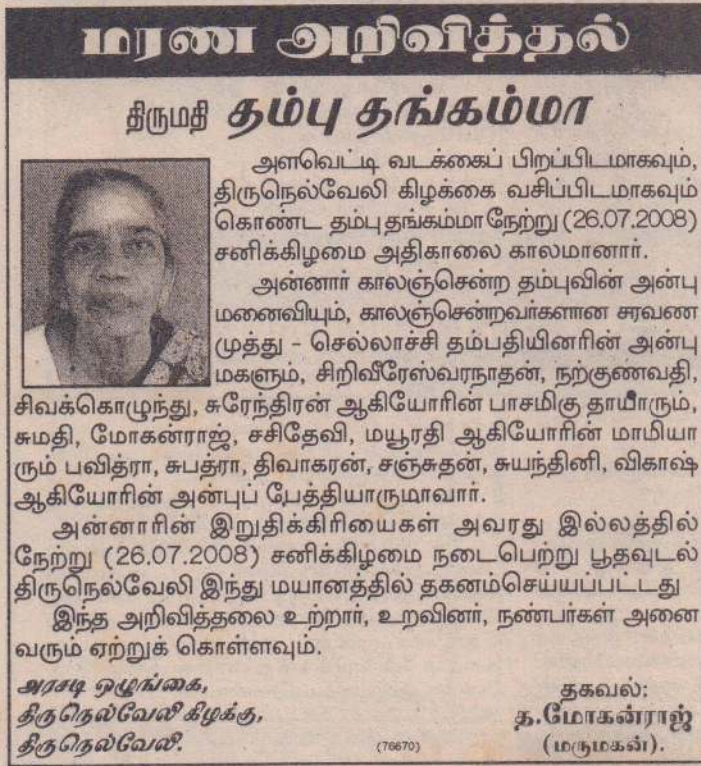 மரண அறிவித்தல்
திருமதி தம்பு தங்கம்மா
அளவெட்டி வடக்கைப் பிறப்பிடமாகவும்,
திருநெல்வேலி கிழக்கை வசிப்பிடமாகவும்
கொண்ட தம்பு தங்கம்மா நேற்று (26.07.2008)
சனிக்கிழமை அதிகாலை காலமானார்.
அன்னார் காலஞ்சென்ற தம்புவின் அன்பு
மனைவியும், காலஞ்சென்றவர்களான சரவண
முத்து - செல்லாச்சி தம்பதியினரின் அன்பு
மகளும், சிறிவீரேஸ்வரநாதன், நற்குணவதி,
சிவக்கொழுந்து, சுரேந்திரன் ஆகியோரின் பாசமிகு தாயாரும்,
சுமதி, மோகன்ராஜ், சசிதேவி, மயூரதி ஆகியோரின் மாமியா
ரும் பவித்ரா, சுபத்ரா, திவாகரன், சஞ்சுதன், சுயந்தினி, விகாஷ்
ஆகியோரின் அன்புப் பேத்தியாருமாவார்.
அன்னாரின் இறுதிக்கிரியைகள் அவரது இல்லத்தில்
நேற்று (26.07.2008) சனிக்கிழமை நடைபெற்று பூதவுடல்
திருநெல்வேலி இந்து மயானத்தில் தகனம்செய்யப்பட்டது
இந்த அறிவித்தலை உற்றார், உறவினர், நண்பர்கள் அனை
வரும் ஏற்றுக் கொள்ளவும்.
அரசடி ஒழுங்கை,
திருநெல்வேலி கிழக்கு,
திருநெல்வேலி.
(76670)
தகவல்:
த.மோகன்ராஜ்
(மருமகன்).